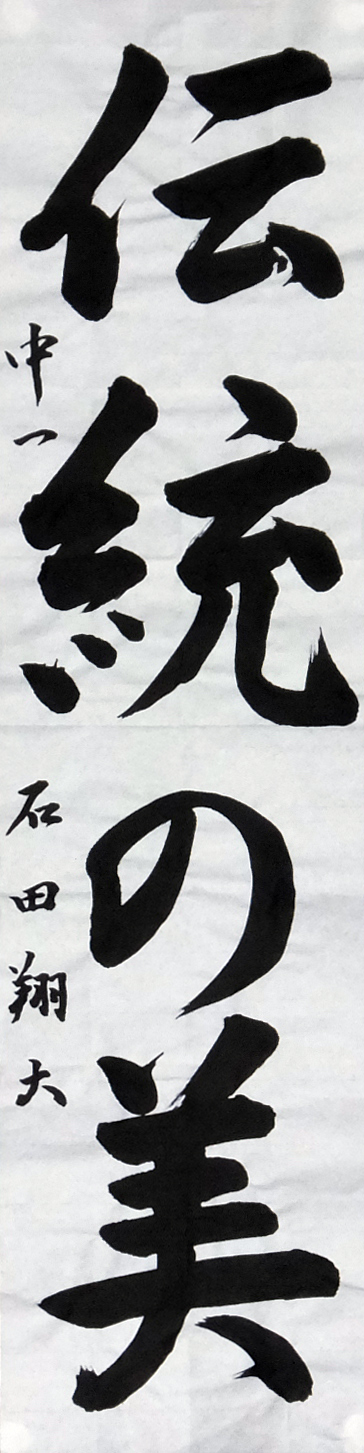 伝統の美
中一
石田翔大